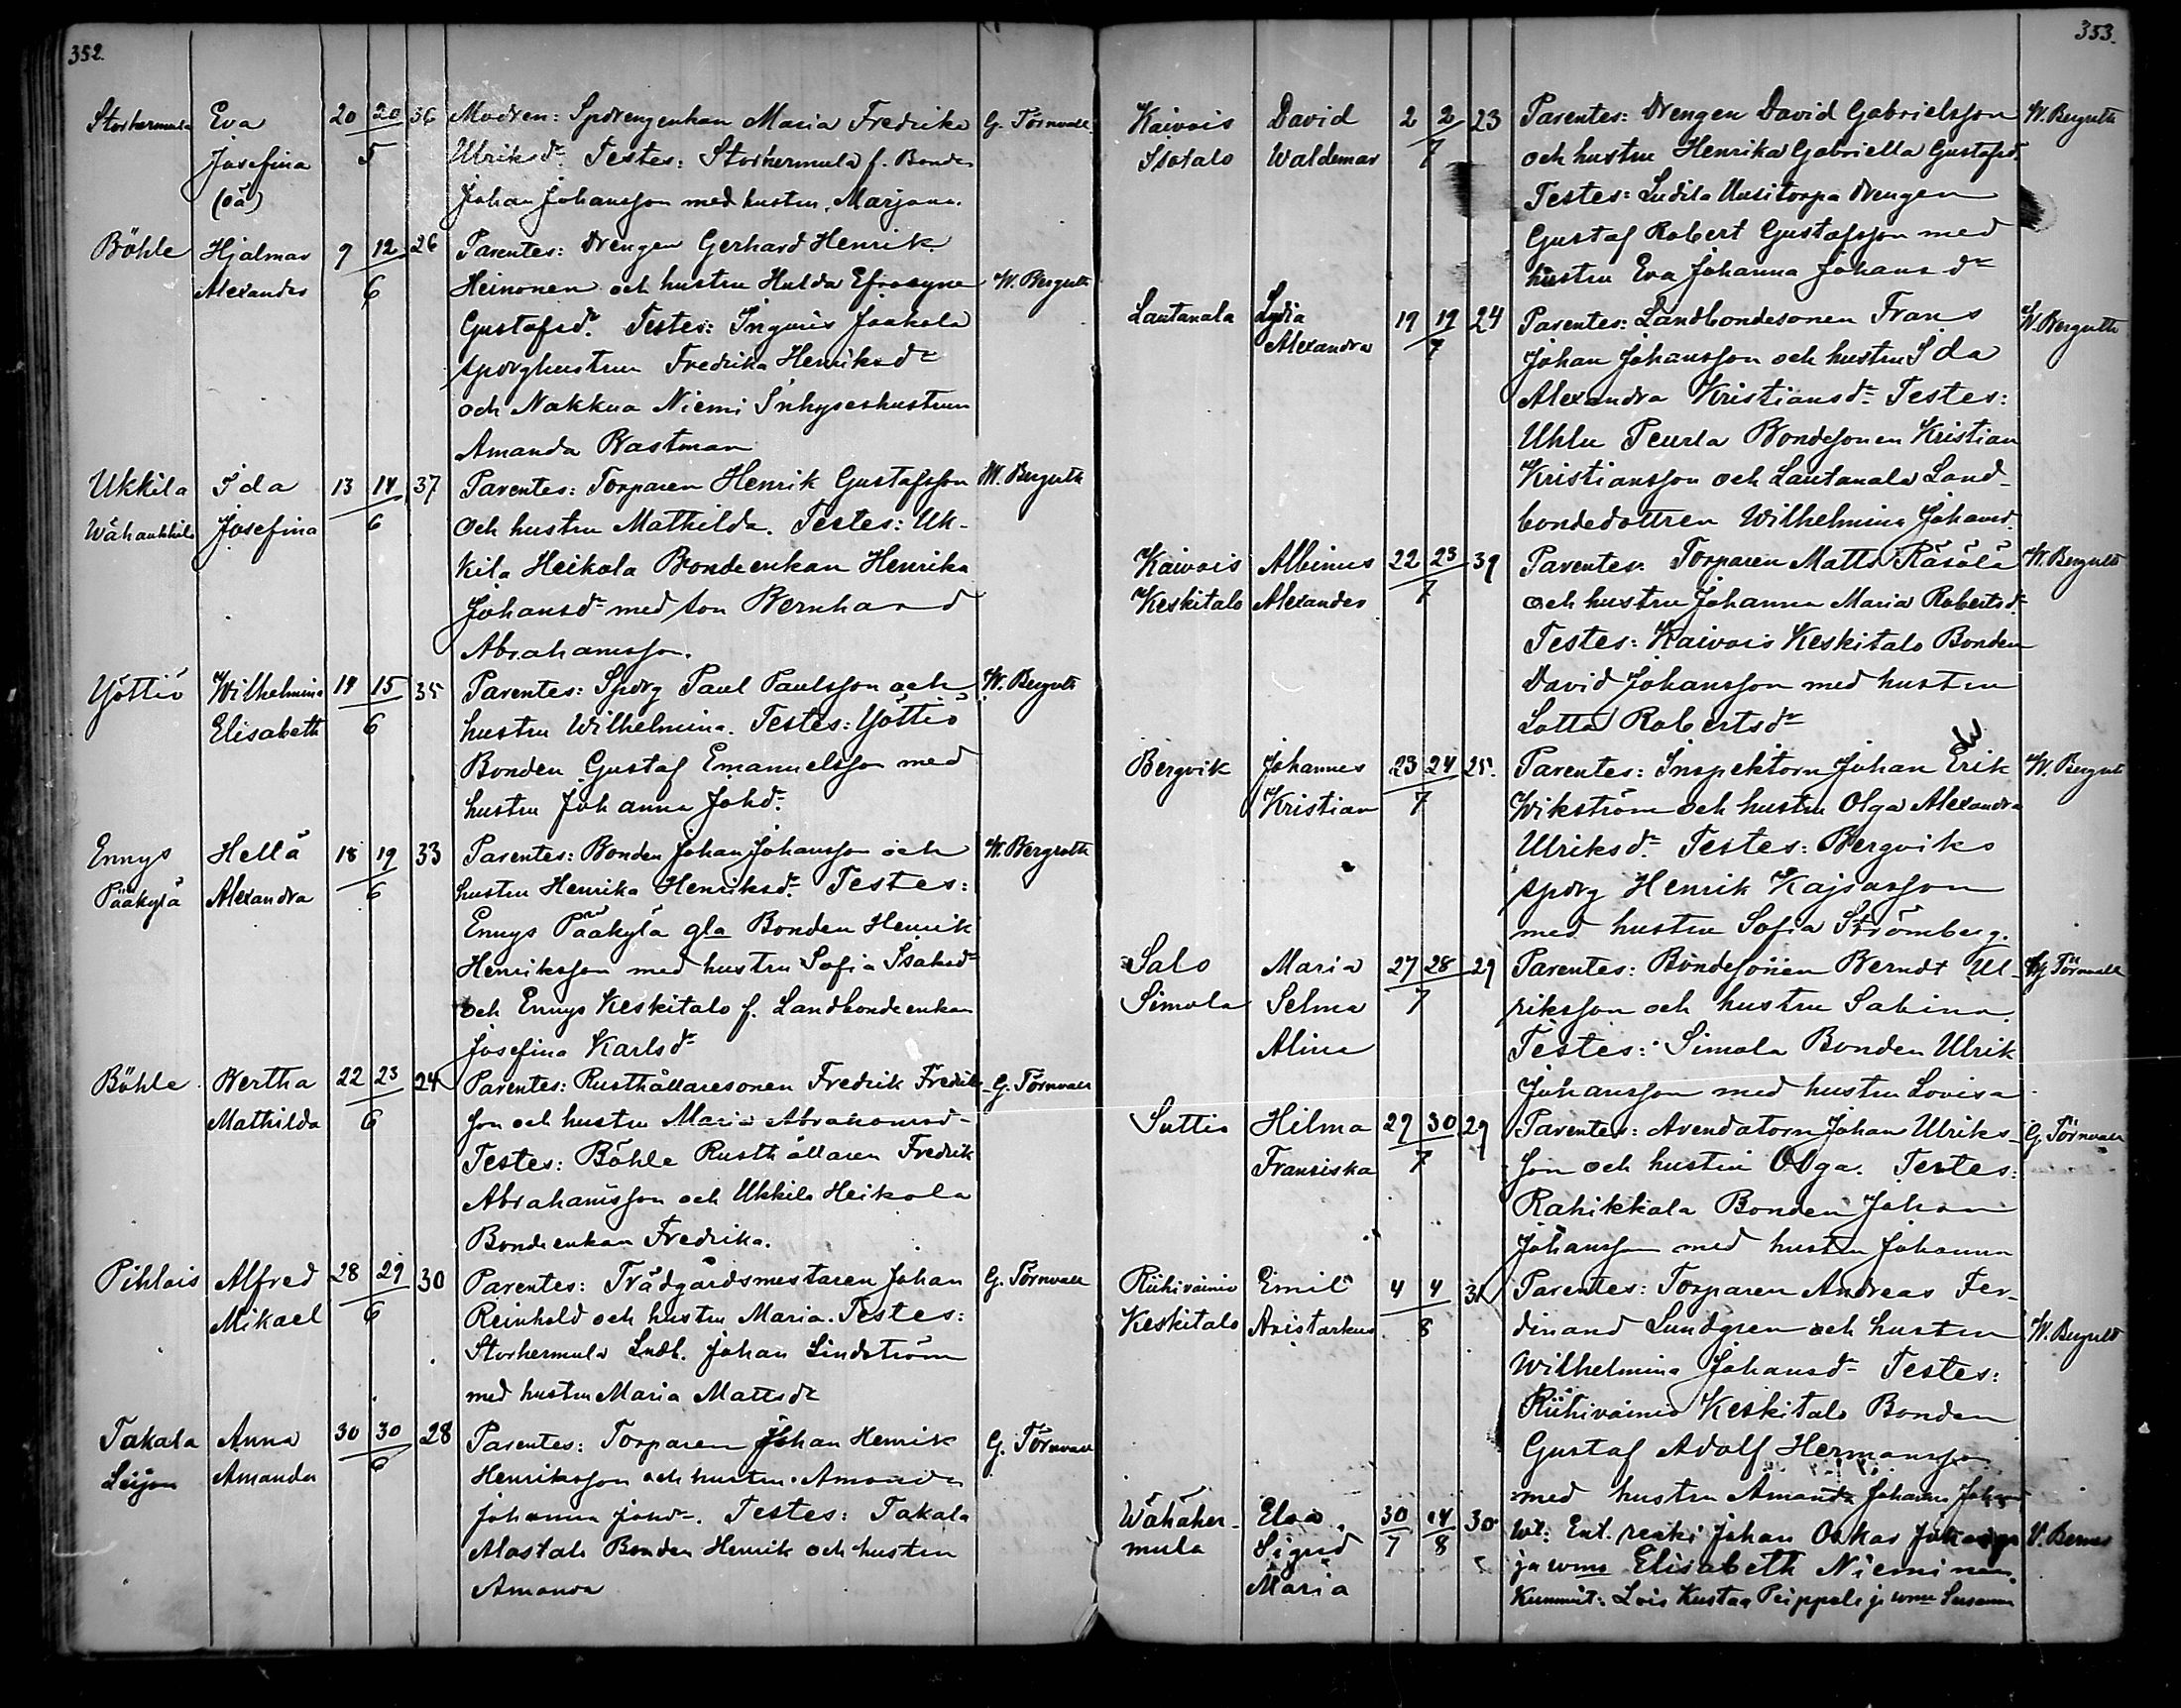 352.
Storhermula Eva 20 20/5 36 Modren: Spdrengenkan Maria Fredrika G. Törnvall
Josefina Ulriksdr Testes: Storhermula f. Bonden
(oä) Johan Johansson med hustru Marjana.
Böhle Hjalmar 9 12/6 26 Parentes: Drengen Gerhard Henrik
Alexander Heinonen och hustru Hulda Efrosyne W. Bergroth
Gustafsdr. Testes: Ingmis Jaakola
spdrghustrun Fredrika Henriksdr
och Nakkua Niemi Inhyseshustrun
Amanda Wastman
Ukkila Ida 13 14/6 37 Parentes: Torparen Henrik Gustafsson W. Bergroth
Wähäukkila Josefina och hustru Mathilda. Testes: Uk-
kila Heikola Bondeenkan Henrika
Johansdr med son Bernhard
Abrahamsson.
Yöttiö Wilhelmina 14 15/6 35 Parentes: Spdrg Paul Paulsson och W. Bergroth
Elisabeth hustru Wilhelmina. Testes: Yöttiö
Bonden Gustaf Emanuelsson med
hustru Johanna Johdr.
Ennys Hellä 18 19/6 33 Parentes: Bonden Johan Johansson och W. Bergroth
Pääkylä Alexandra hustru Henrika Henriksdr. Testes:
Ennys Pääkylä gla Bonden Henrik
Henriksson med hustru Sofia Isaksdr
och Ennys Keskitalo f. Landbondeenkan
Josefina Karlsdr
Böhle Bertha 22 23/6 24 Parentes: Rusthållaresonen Fredrik Fredriks- G. Törnvall
Mathilda son och hustru Maria Abrahamsd-
Testes: Böhle Rusthållaren Fredrik
Abrahamsson och Ukkila Heikola
Bondeenkan Fredrika.
Pihlais Alfred 28 29/6 30 Parentes: Trädgårdsmestaren Johan G. Törnvall
Mikael Reinhold och hustru Maria. Testes:
Storhermula Lndb. Johan Lindström
med hustru Maria Mattsdr
Takala Anna 30 30/6 28 Parentes: Torparen Johan Henrik G. Törnvall
Leijon Amanda Henriksson och hustru Amanda
Johanna Johdr. Testes: Takala
Alastalo Bonden Henrik och hustru
Amanda
353.
Kaivois David 2 2/7 23 Parentes: Drengen David Gabrielsson W. Bergroth
Isotalo Waldemar och hustru Henrika Gabriella Gustafsd.
Testes: Ludila Uusitorpa drengen
Gustaf Robert Gustafsson med
hustru Eva Johanna Johansdr
Lautanala Lydia 19 19/7 24 Parentes: Landbondesonen Frans W. Bergroth
Alexandra Johan Johansson och hustru Ida
Alexandra Kristiansdr Testes:
Uhlu Peurla Bondesonen Kristian
Kristiansson och Lautanala Land-
bondedottren Wilhelmina Johansd.
Kaivois Albinus 22 23/7 39 Parentes: Torparen Matts Räsälä W. Bergroth
Keskitalo Alexander och hustru Johanna Maria Robertsdr.
Testes: Kaivois Keskitalo Bonden
David Johansson med hustru
Lotta Robertsdr
Bergvik Johannes 23 24/7 25. Parentes: Inspektorn Johan Erik W. Bergroth
Kristian Wikström och hustru Olga Alexandra
Ulriksdr. Testes: Bergviks
spdrg Henrik Kajsasson
med hustru Sofia Strömberg.
Salo Maria 27 28/7 29 Parentes: Bondesonen Berndt Ul- G. Törnvall
Simola Selma riksson och hustru Sabina.
Alina Testes: Simola Bonden Ulrik
Johansson med hustru Lovisa
Suttis Hilma 29 30/7 29 Parentes: Arendatorn Johan Ulriks- G. Törnvall
Fransiska son och hustru Olga. Testes:
Rahikkala Bonden Johan
Johansson med hustru Johanna
Riihivainio Emil 4 4/8 31 Parentes: Torparen Andreas Fer-
Keskitalo Aristarkus dinand Lundgren och hustru W. Bergroth
Wilhelmina Johansdr Testes:
Riihivainio Keskitalo Bonden
Gustaf Adolf Hermansson
med hustru Amanda Johanna
Wähäher- Elsa 30/7 14/8 30 Wt: Ent. renki Johan Oskar
mula Sigrid ja wmo Elisabeth Nieminen.
Maria Kummit: Lois Kustaa Peippola ja wmo Susanna